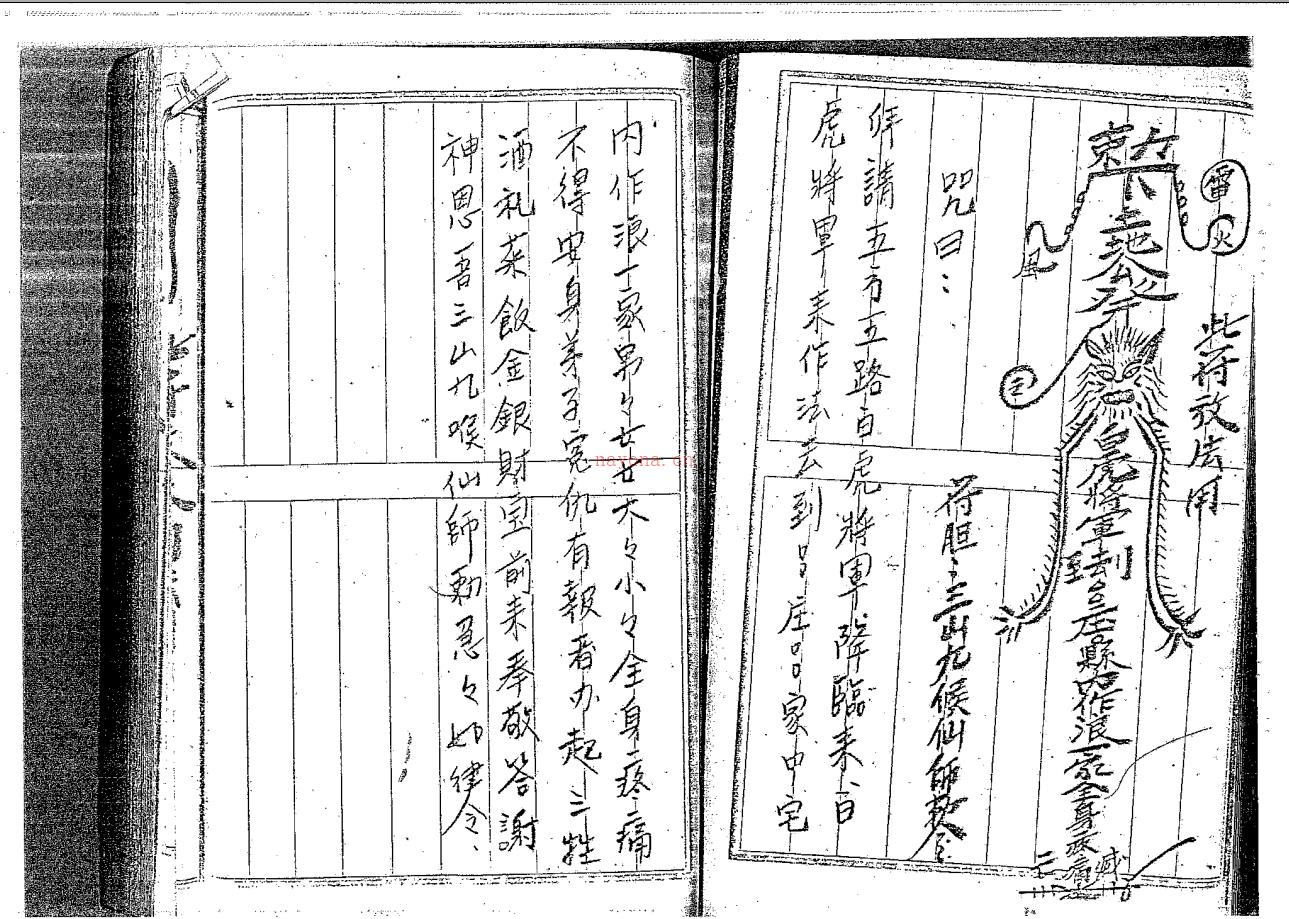 此符放法用
雷
火
風
皇虎將軍去到呂庄呂縣內作浪一家全身疼痛
符胆:三山九候仙師敕令:
咒曰:
拜請五方五路白虎將軍降臨來、白
虎將軍來作法去到呂庄呂家中宅
内作浪一家男々女女大々小々全身疼痛
不得安身弟子寃仇有報著办起三牲
酒礼菜飯金銀財宝前来奉敬答謝
神恩吾三山九喉仙師勅急々如律令、
nayona.cn